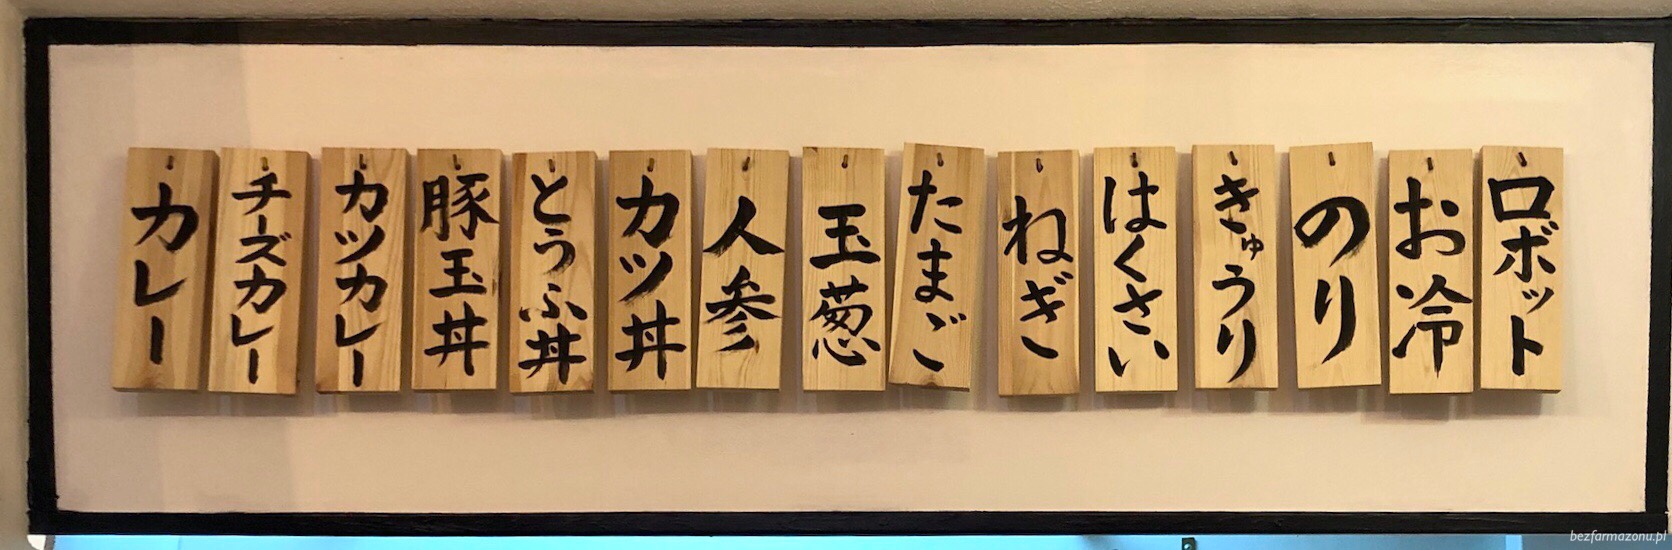 ロボット
お冷
のり
きゅうり
はくさい
ねぎ
たまご
玉葱
人参
カツ丼
とうふ丼
豚玉丼
カツカレー
チーズカレー
カレー
bezfarmazonu.pl